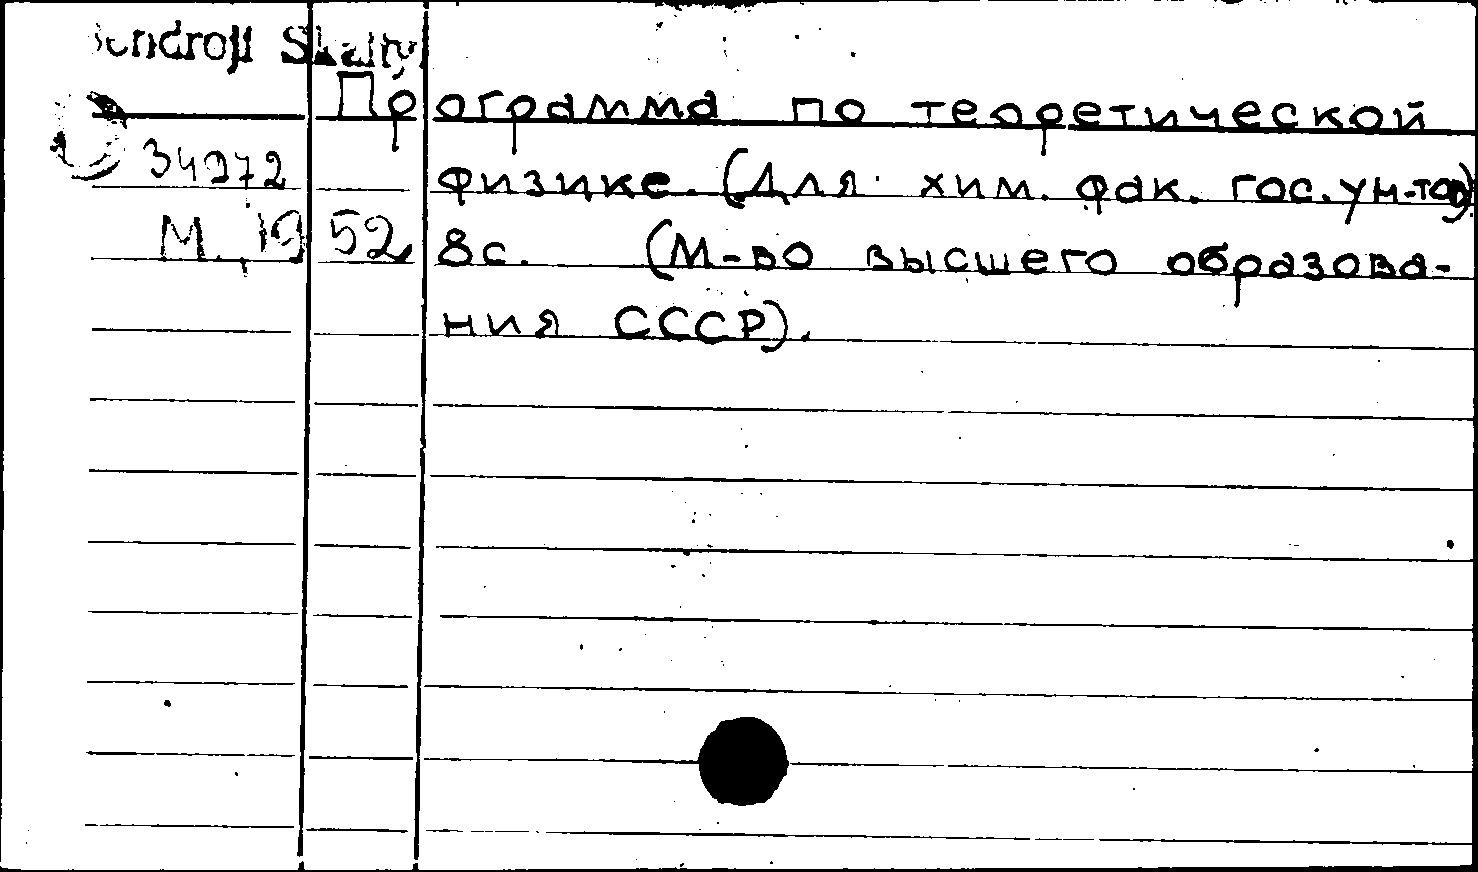 Bendroji Skaity
Программа по теоретической
34972 физике. (Для хим. фак. гос. ун-тов)
М., 1952 8с. (М-во высшего образова-
ния СССР).